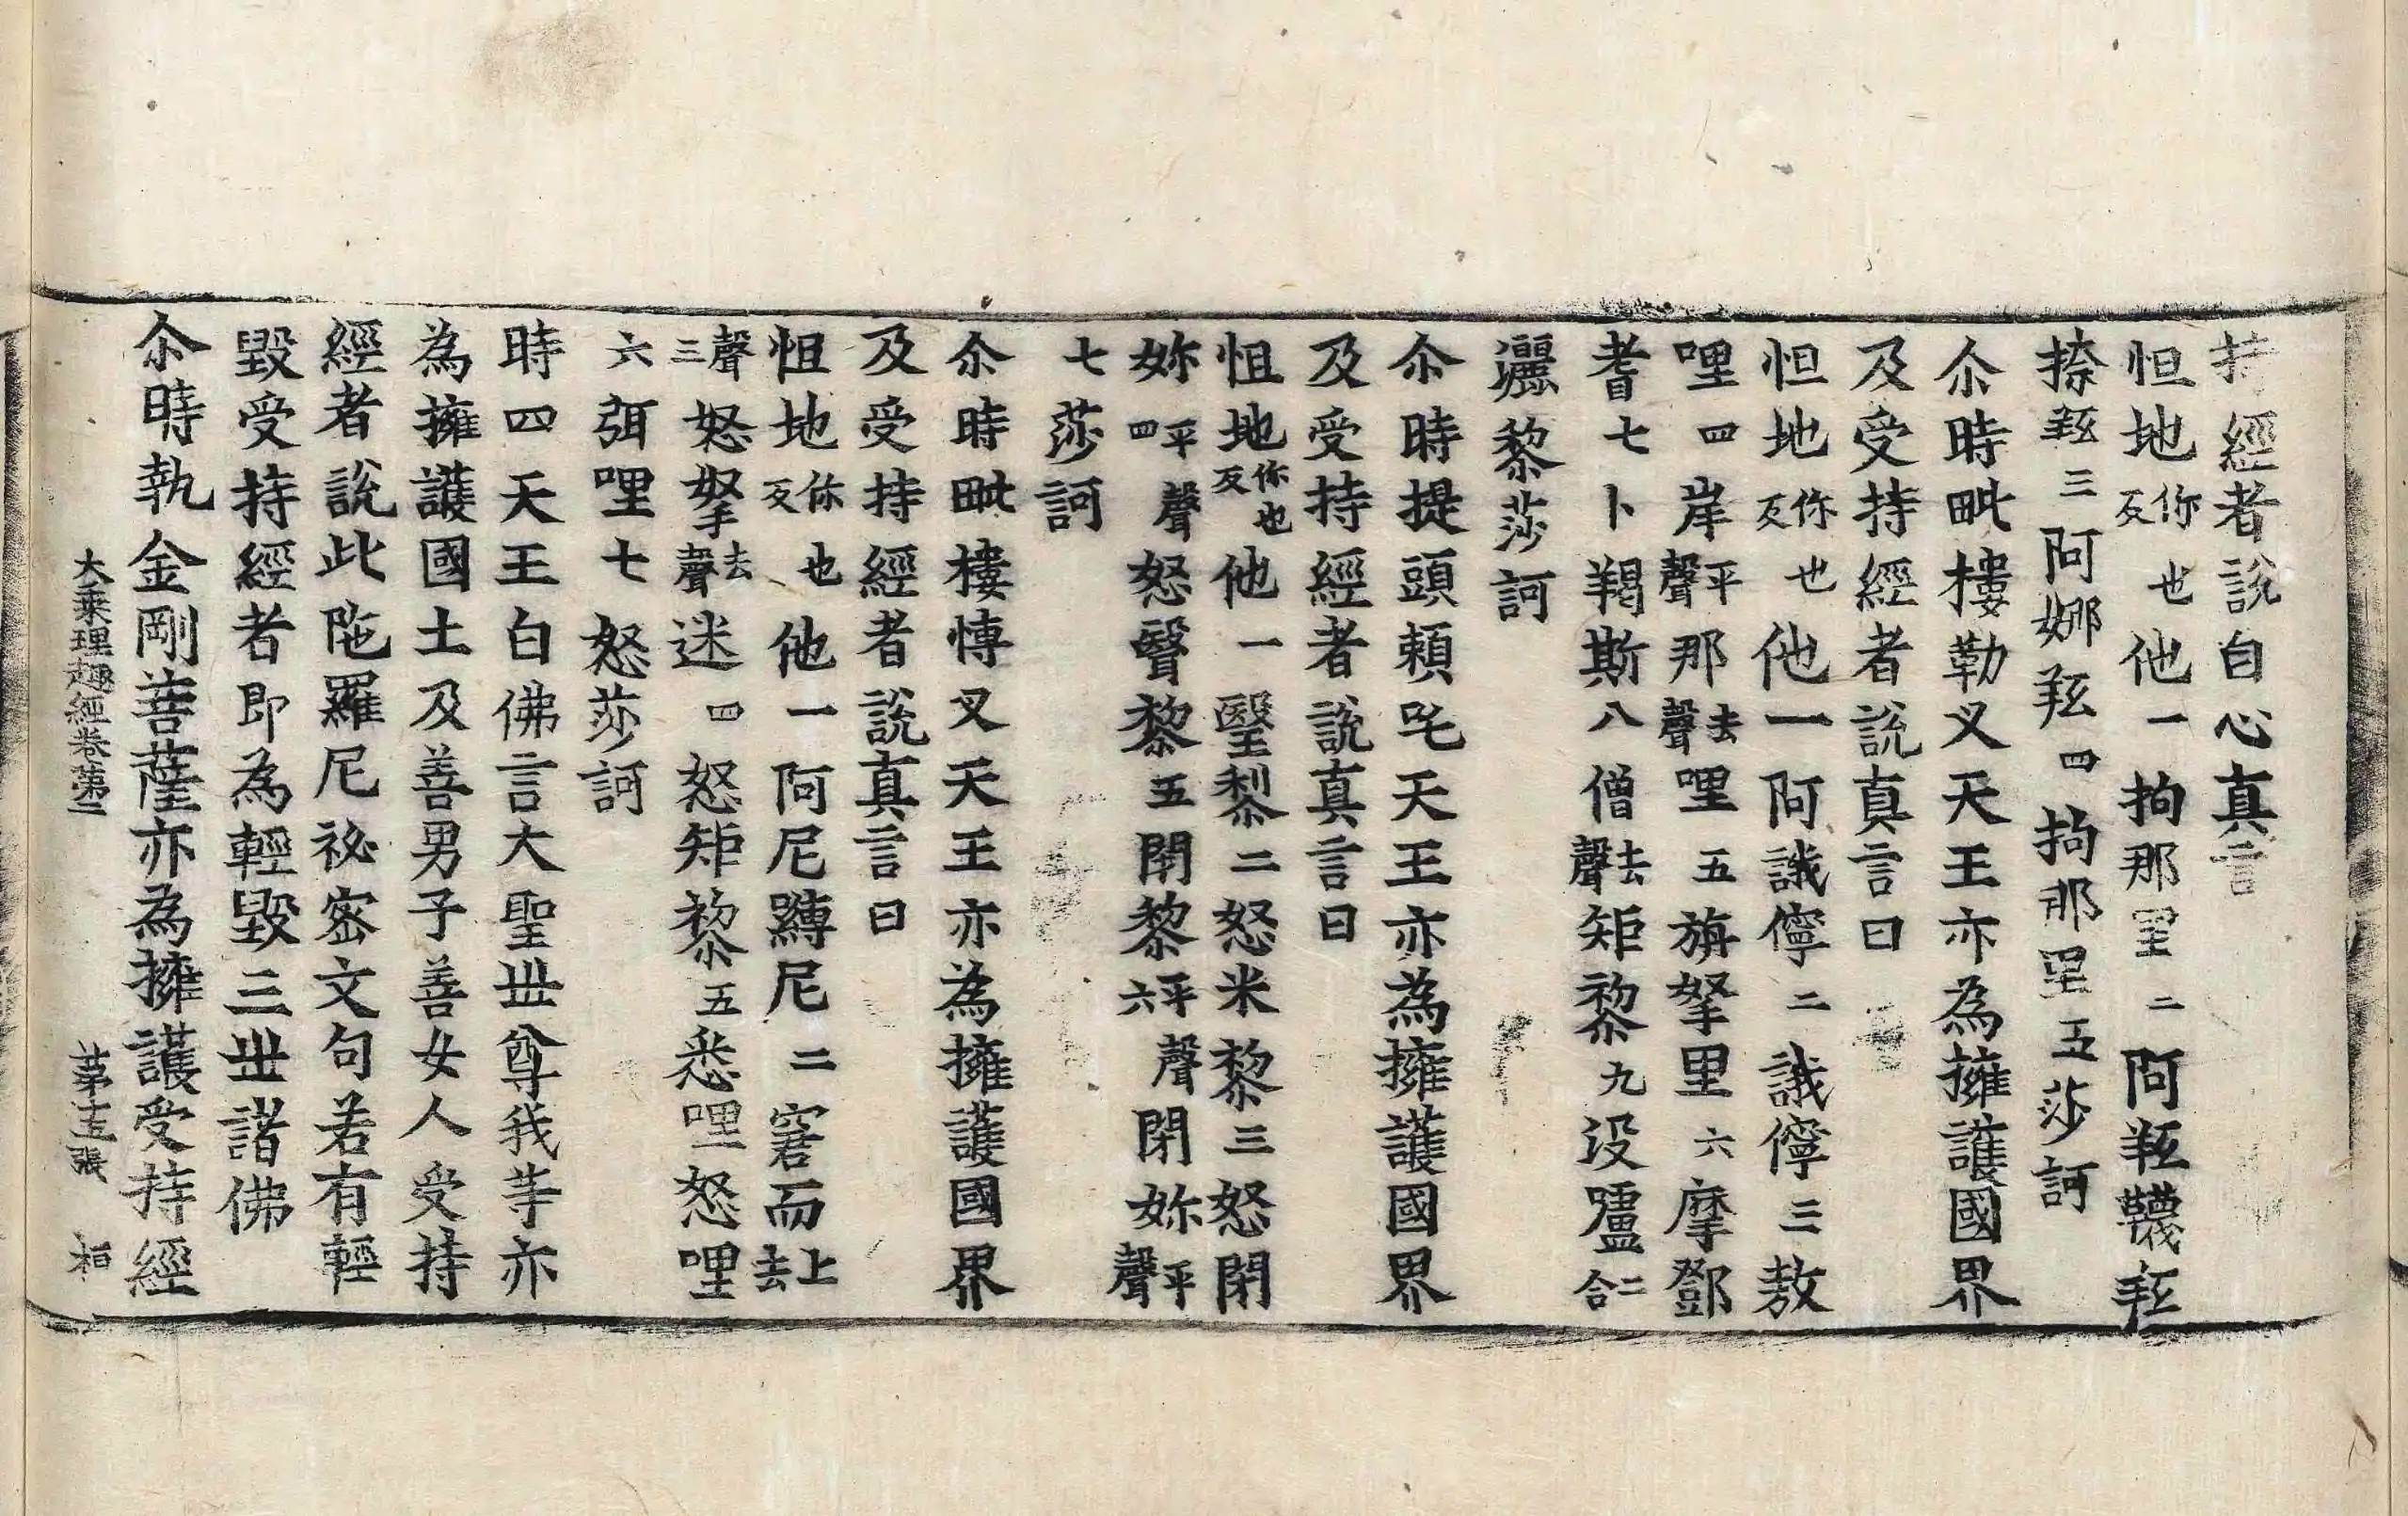 持經者說自心真言
怛地你也反他一拘那里二阿𦍕韈𦍕
捺𦍕三阿娜𦍕四拘那里五莎訶
尒時毗樓勒叉天王亦為擁護國界
及受持經者說真言曰
怛地你也反他一阿誐儜二誐儜三敖
哩四岸平聲那去聲哩五旃拏里六摩鄧
耆七卜羯斯八僧去聲矩黎九没嚧二合
灑黎莎訶
尒時提頭頼吒天王亦為擁護國界
及受持經者說真言曰
怛地你也反他一瑿黎二怒米黎三怒閉
妳平聲四怒瞖黎五閉黎平聲六閉妳平聲
七莎訶
尒時毗樓博叉天王亦為擁護國界
及受持經者說真言曰
怛地你也反他一阿尼䩕尼二窘而上去
聲三怒拏去聲迷四怒矩黎五悉哩怒哩
六弭哩七怒莎訶
時四天王白佛言大聖世尊我等亦
為擁護國土及善男子善女人受持
經者說此陁羅尼祕密文句若有輕
毀受持經者即為輕毀三世諸佛
尒時執金剛菩薩亦為擁護受持經
大乘理趣經卷第二 第十五張 桓